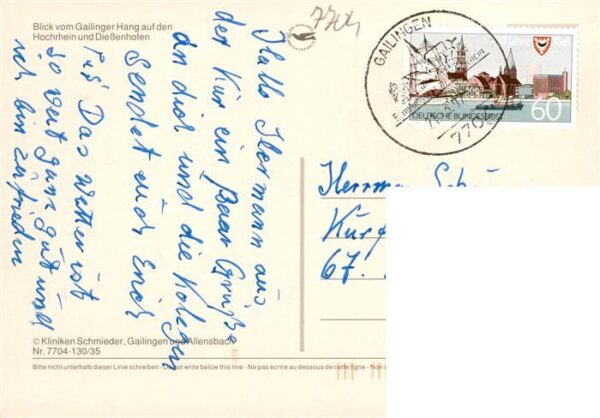 Blick vom Gailinger Hang auf den
Hochrhein und Dießenhofen
7704
Hallo Hermann aus
der Kur ein paar Grüße
an dich und die Kolegen
sendet euch Erich
Das Wetter ist
so weit ganz gut und
ich bin zufrieden
© Kliniken Schmieder, Gailingen und Allensbach
Nr. 7704-130/35
Bitte nicht unterhalb dieser Linie schreiben · Do not write below this line · Ne pas écrire au dessous de cette ligne · Non
GAILINGEN
7704
Jahre
DEUTSCHE BUNDESPOST
60
Herrmann
67.